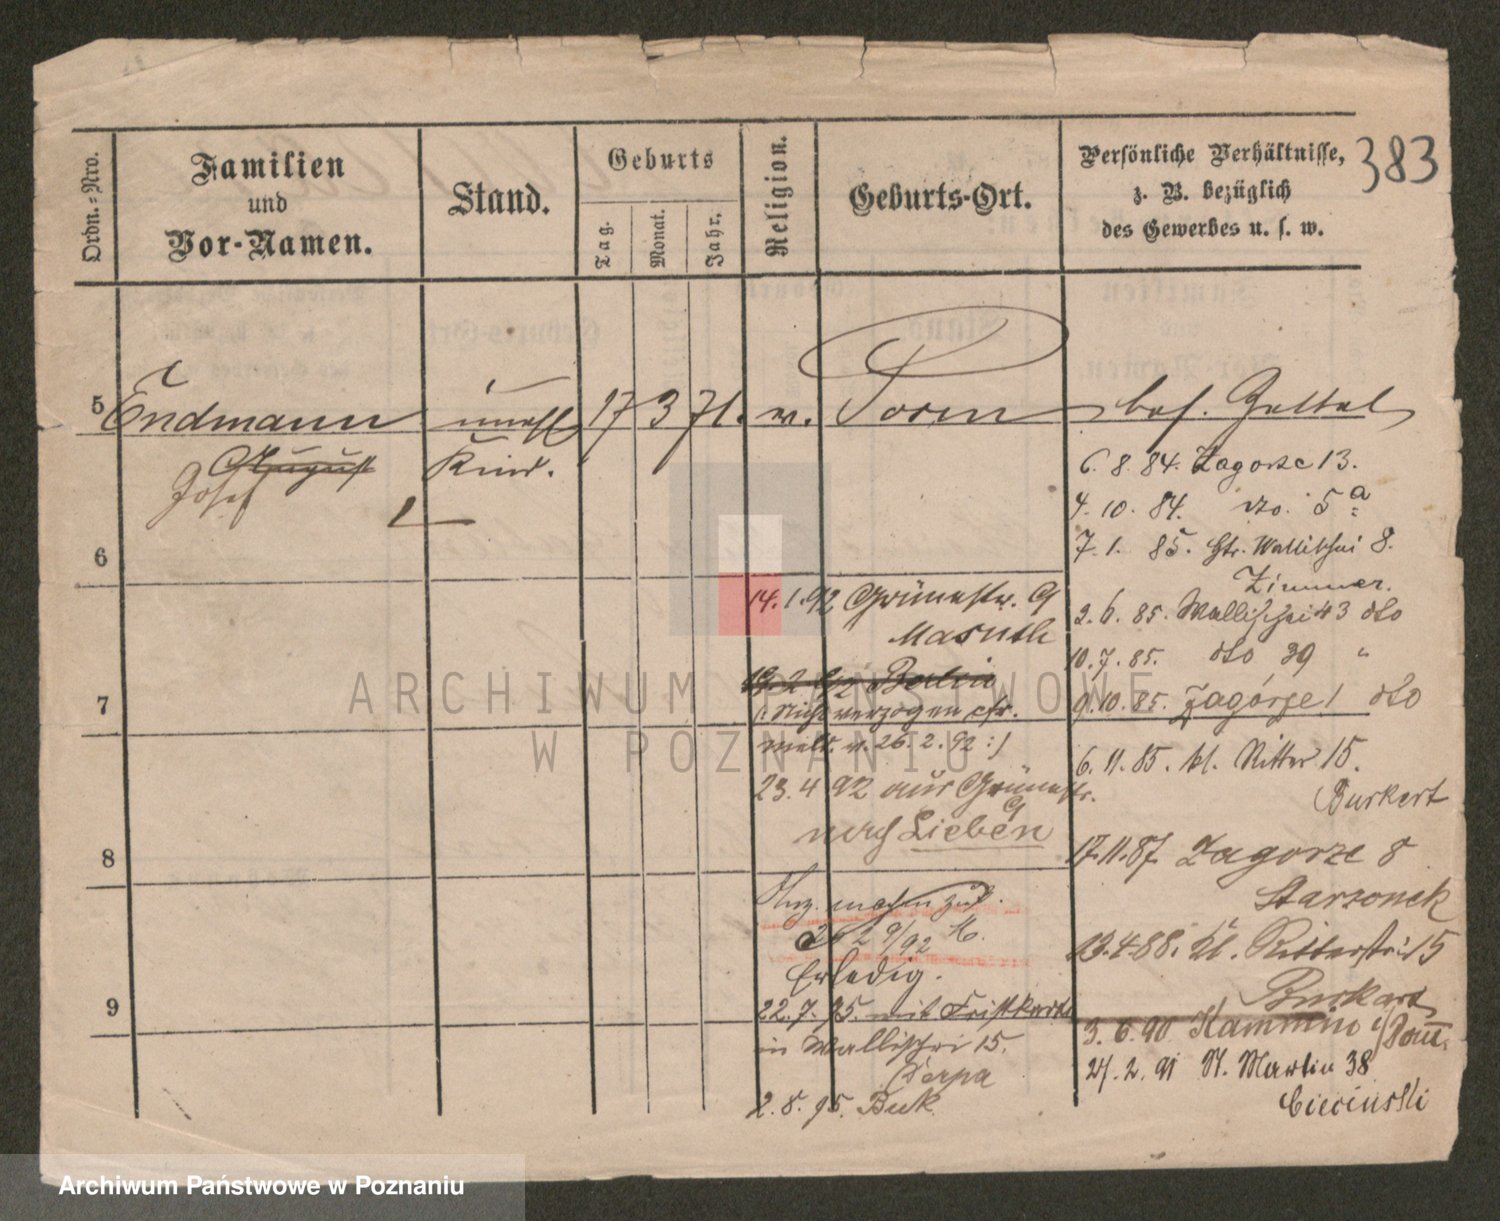 383
Ordn.-Nro.
Familien
und
Vor-Namen.
Stand.
Geburts
Tag.
Monat.
Jahr.
Religion.
Geburts-Ort.
Persönliche Verhältnisse,
z. B. bezüglich
des Gewerbes u. s. w.
5 Endmann unehl 17 3 71. Posen bes. Zettel
August Kind.
Josef
6. 8. 84. Zagorze 13.
4. 10. 84. dto. 5 a
7. 1. 85. Gr. Wallischei 8.
Zimmer.
6
2. 6. 85. Wallischei 43 dto
10. 7. 85. dto 39 "
9. 10. 85. Zagórze 1 dto
7
6. 11. 85. kl. Ritter 15.
Burkert
17. 11. 87. Zagorze 8
8
23. 4. 88. kl. Ritterstr. 15
Burkert
9
3. 6. 90 Kammin i/Pom.
27. 2. 91 St. Martin 38
Ciecinski
14. 1. 92 Grünestr. 9
Masuth
13. 2. 92 Berlin
(: Nicht verzogen cfr.
v. 26. 2. 92 :)
23. 4 92 aus Grünestr.
9
nach Lieben
9/92
Erledig.
22. 7. 95. mit Fristkarte
in Wallischei 15.
2. 8. 95. Buk
ARCHIWUM PAŃSTWOWE
W POZNANIU
Archiwum Państwowe w Poznaniu